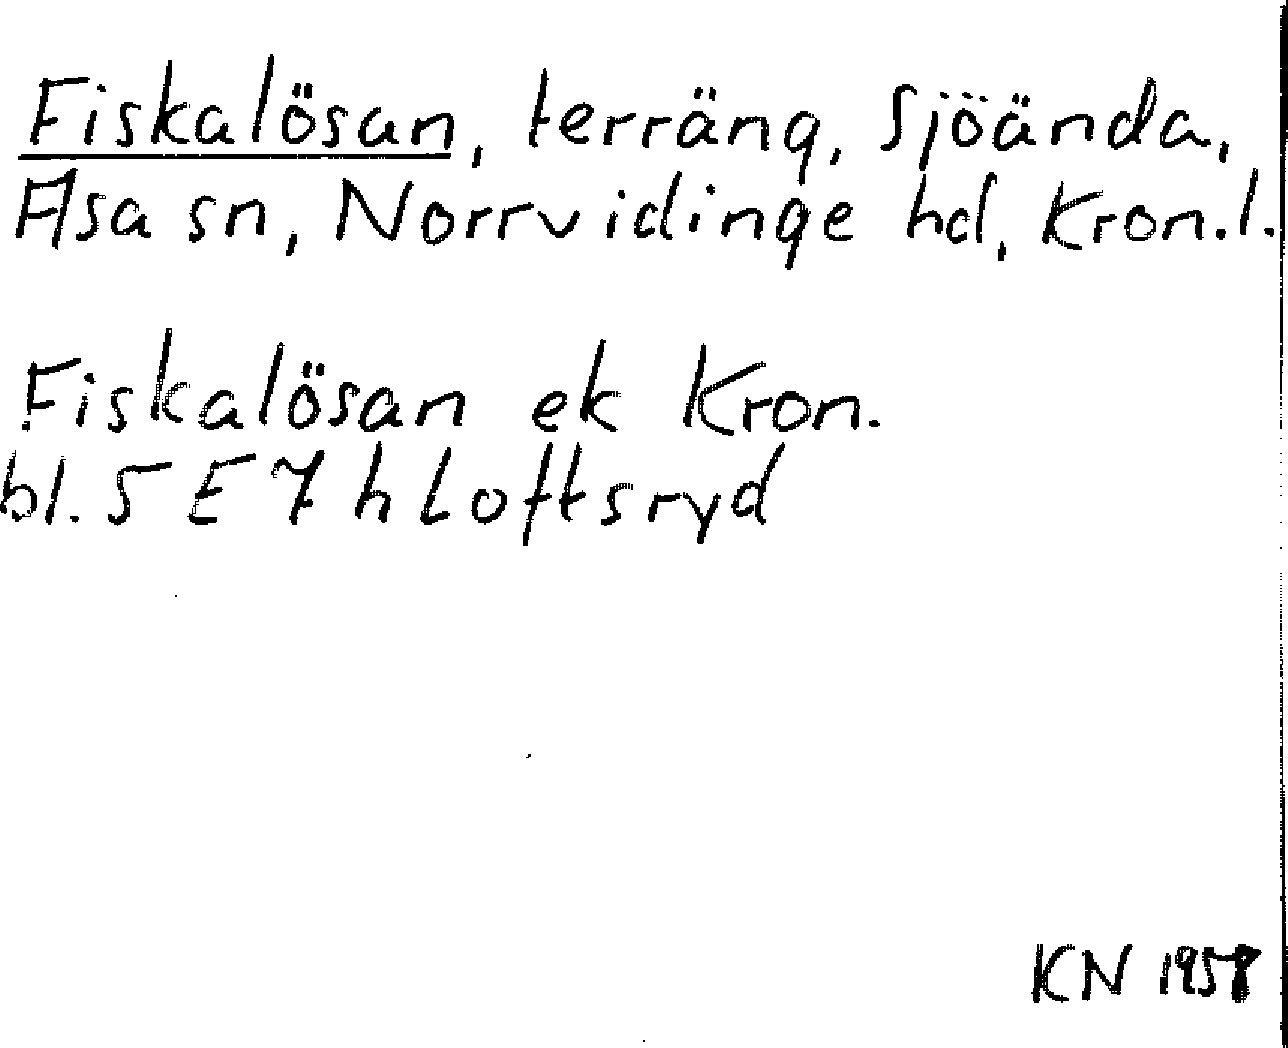 Fiskalösan, terräng, Sjöända,
Asa sn, Norrvidinge hd, Kron.l.
Fiskalösan ek Kron.
bl. 5 E 7 h Loftsryd
KN